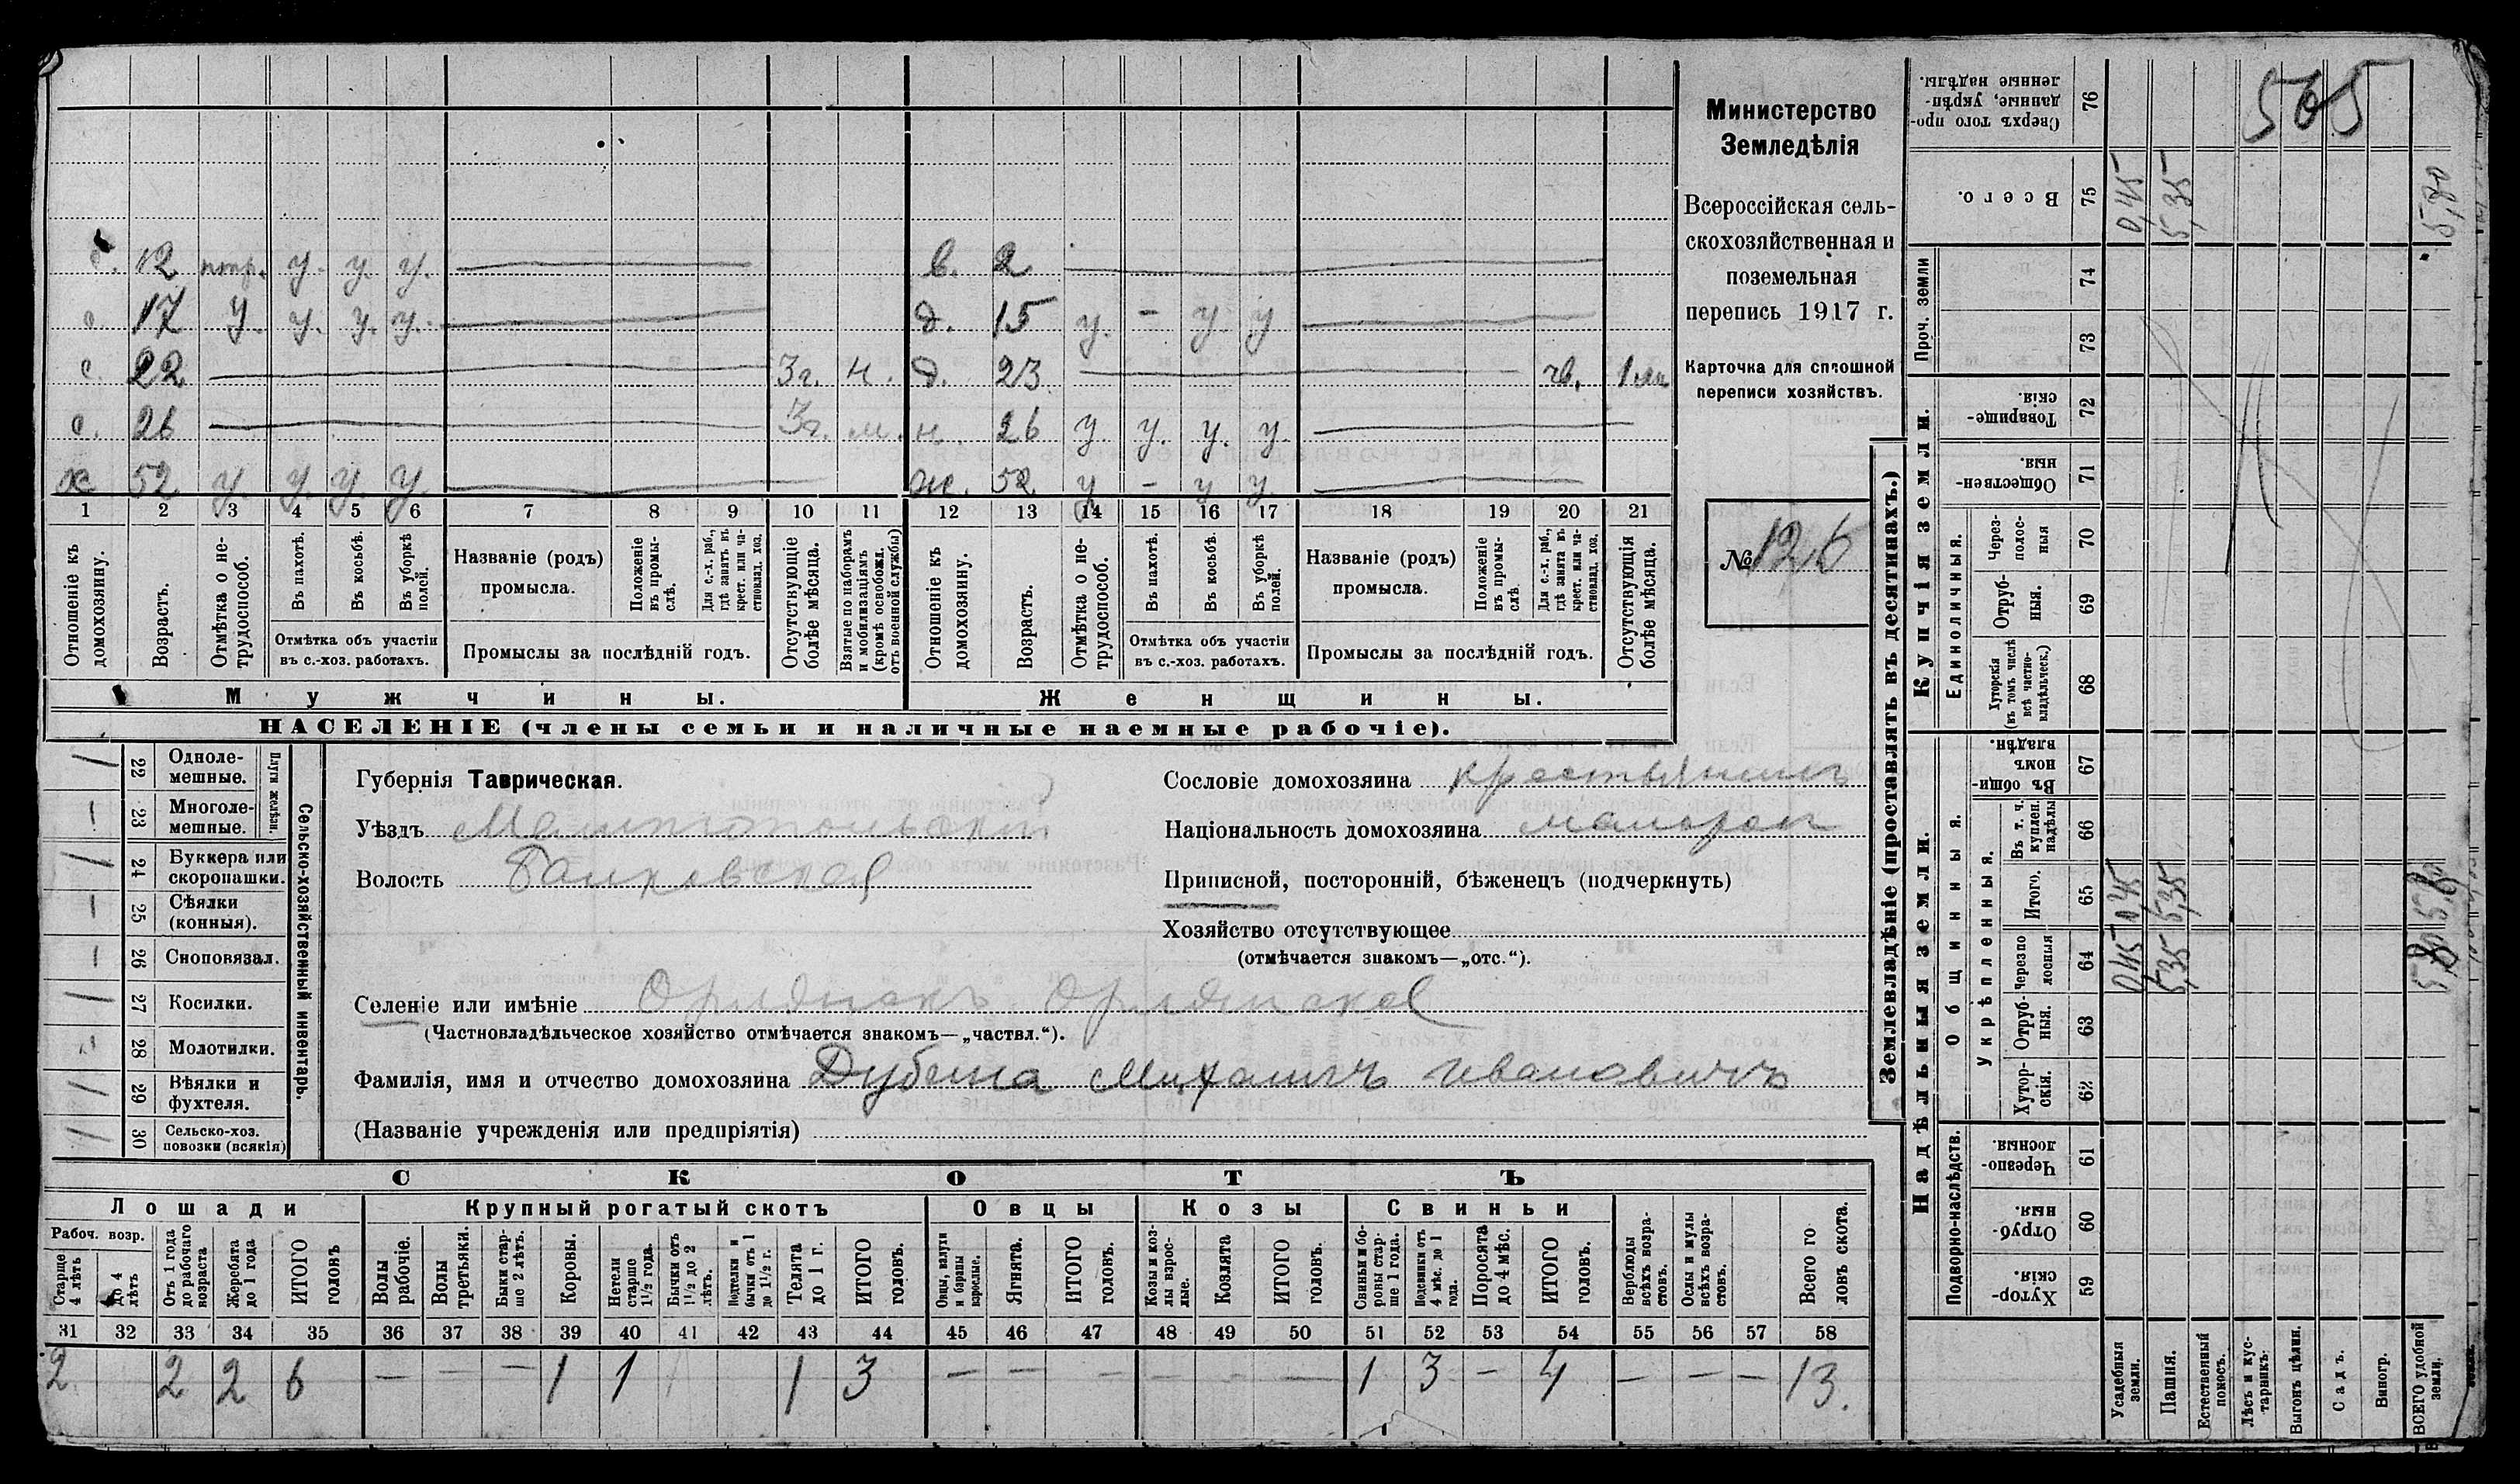 б. 12 нетр. у. у. у. — в. 2 —
с. 17 у. у. у. у. — д. 15 у. - у у —
с. 22 — 3г. н. д. 23 — чв. 1 м
с. 26 — 3г. м. н. 26 у. у. у. у. —
х 52 у. у. у. у. — ж. 52 у - у у. —
1 2 3 4 5 6 7 8 9 10 11 12 13 14 15 16 17 18 19 20 21
Отношеніе къ домохозяину.
Возрастъ.
Отмѣтка о не-
трудоспособ.
Въ пахотѣ.
Въ косьбѣ.
Въ уборкѣ
полей.
Отмѣтка объ участіи
въ с.-хоз. работахъ.
Названіе (родъ)
промысла.
Положеніе
въ промы-
слѣ.
Для с.-х. раб.,
гдѣ занятъ въ
крест. или ча-
стновлад. хоз.
Промыслы за послѣдній годъ.
Отсутствующіе
болѣе мѣсяца.
Взятые по наборамъ
и мобилизаціямъ
(кромѣ освобожд.
отъ военной службы)
Отношеніе къ
домохозяину.
Возрастъ.
Отмѣтка о не-
трудоспособ.
Въ пахотѣ.
Въ косьбѣ.
Въ уборкѣ
полей.
Отмѣтка объ участіи
въ с.-хоз. работахъ.
Названіе (родъ)
промысла.
Положеніе
въ промы-
слѣ
Для с.-х. раб.,
гдѣ занята въ
крест. или ча-
стновлад. хоз.
Промыслы за послѣдній годъ.
Отсутствующія
болѣе мѣсяца.
Мужчины.
Женщины.
НАСЕЛЕНІЕ (члены семьи и наличные наемные рабочіе).
Министерство
Земледѣлія
Всероссійская сель-
скохозяйственная и
поземельная
перепись 1917 г.
Карточка для сплошной
переписи хозяйствъ.
№ 126
22 Одноле-
мешные.
23 Многоле-
мешные.
Плуги желѣзн.
24 Буккера или
скоропашки.
25 Сѣялки
(конныя).
26 Сноповязал.
27 Косилки.
28 Молотилки.
29 Вѣялки и
фухтеля.
30 Сельско-хоз.
повозки (всякія)
Сельско-хозяйственный инвентарь.
Губернія Таврическая.
Уѣздъ Мелитопольскій
Волость Балковская
Сословіе домохозяина крестьянинъ
Національность домохозяина малорос
Приписной, посторонній, бѣженецъ (подчеркнуть)
Хозяйство отсутствующее
(отмѣчается знакомъ—„отс.“).
Селеніе или имѣніе Орлянскъ Орлянское
(Частновладѣльческое хозяйство отмѣчается знакомъ—„частвл.“).
Фамилія, имя и отчество домохозяина Дубина Михаилъ Ивановичъ
(Названіе учрежденія или предпріятія)
СКОТЪ
Лошади
Крупный рогатый скотъ
Овцы
Козы
Свиньи
Рабоч. возр.
Старше
4 лѣтъ
до 4
лѣтъ
Отъ 1 года
до рабочаго
возраста
Жеребята
до 1 года
ИТОГО
головъ
Волы
рабочіе.
Волы
третьяки.
Быки стар-
ше 2 лѣтъ.
Коровы.
Нетели
старше
1½ года.
Бычки отъ
1½ до 2
лѣтъ.
Подтелки и
бычки отъ 1
до 1½ г.
Телята
до 1 г.
ИТОГО
головъ.
Овцы, валухи
и бараны
взрослые.
Ягнята.
ИТОГО
головъ.
Козы и коз-
лы взрос-
лые.
Козлята
ИТОГО
головъ.
Свиньи и бо-
ровы стар-
ше 1 года.
Подсвинки отъ
4 мѣс. до 1
года.
Поросята
до 4 мѣс.
ИТОГО
головъ.
Верблюды
всѣхъ возра-
стовъ.
Ослы и мулы
всѣхъ возра-
стовъ.
Всего го
ловъ скота.
31 32 33 34 35 36 37 38 39 40 41 42 43 44 45 46 47 48 49 50 51 52 53 54 55 56 57 58
2 2 2 6 — — — 1 1 1 3 — — — — - — 1 3 — 4 — — — 13.
Землевладѣніе (проставлять въ десятинахъ.)
Купчія земли.
Надѣльныя земли.
Сверхъ того про-
данные, укрѣп-
ленные надѣлы. 76
505
Всего. 75 0,45 5,35 5,80
Проч. земли 74
73
Товарище-
скія. 72
Обществен-
ныя. 71
Единоличныя.
Через-
полос-
ныя 70
Отруб-
ныя. 69
Хуторскія
(въ томъ числѣ
всѣ частно-
владѣльческ.) 68
Общинныя.
Въ общи-
номъ
владѣн. 67
Укрѣпленныя.
Въ т. ч.
куплен.
надѣлы 66
Итого. 65 0,45 5,35 5,80
Черезпо
лосныя 64 0,45 5,35 5,80
Отруб-
ныя. 63
Хутор-
скія. 62
Подворно-наслѣдств.
Черезпо-
лосныя. 61
Отруб-
ныя. 60
Хутор-
скія. 59
Усадебныя
земли.
Пашня.
Естественный
покосъ.
Лѣсъ и кус-
тарникъ.
Выгонъ цѣлин.
Садъ.
Виногр.
ВСЕГО удобной
земли.